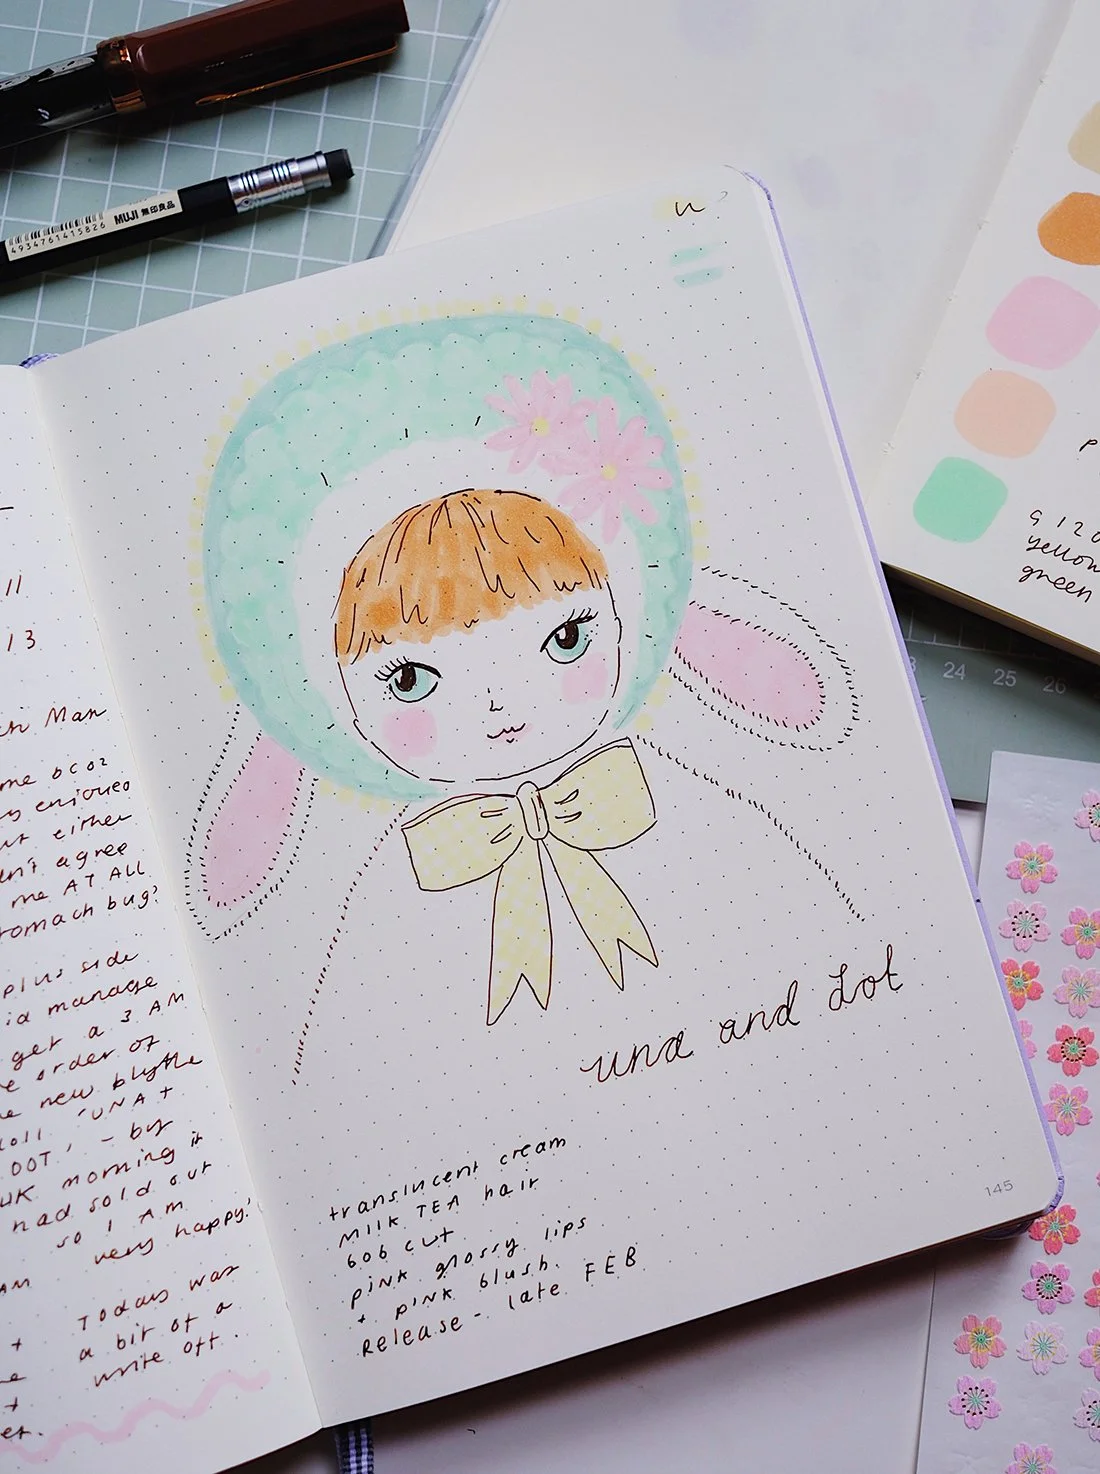 MUJI 無印良品
4934761415826
11
13
Man
me BC02
enjoyed
but either
agree
me AT ALL
stomach bug?
plus side
manage
get a 3 AM
order of
new blythe
'UNA +
DOT, - by
UK morning it
had sold out
so I AM
very happy!
Today was
a bit of a
write off.
una and Lot
translucent cream
MILK TEA hair
bob cut
pink glossy lips
+ pink blush.
Release - late FEB
145
yellow
green
24 25 26